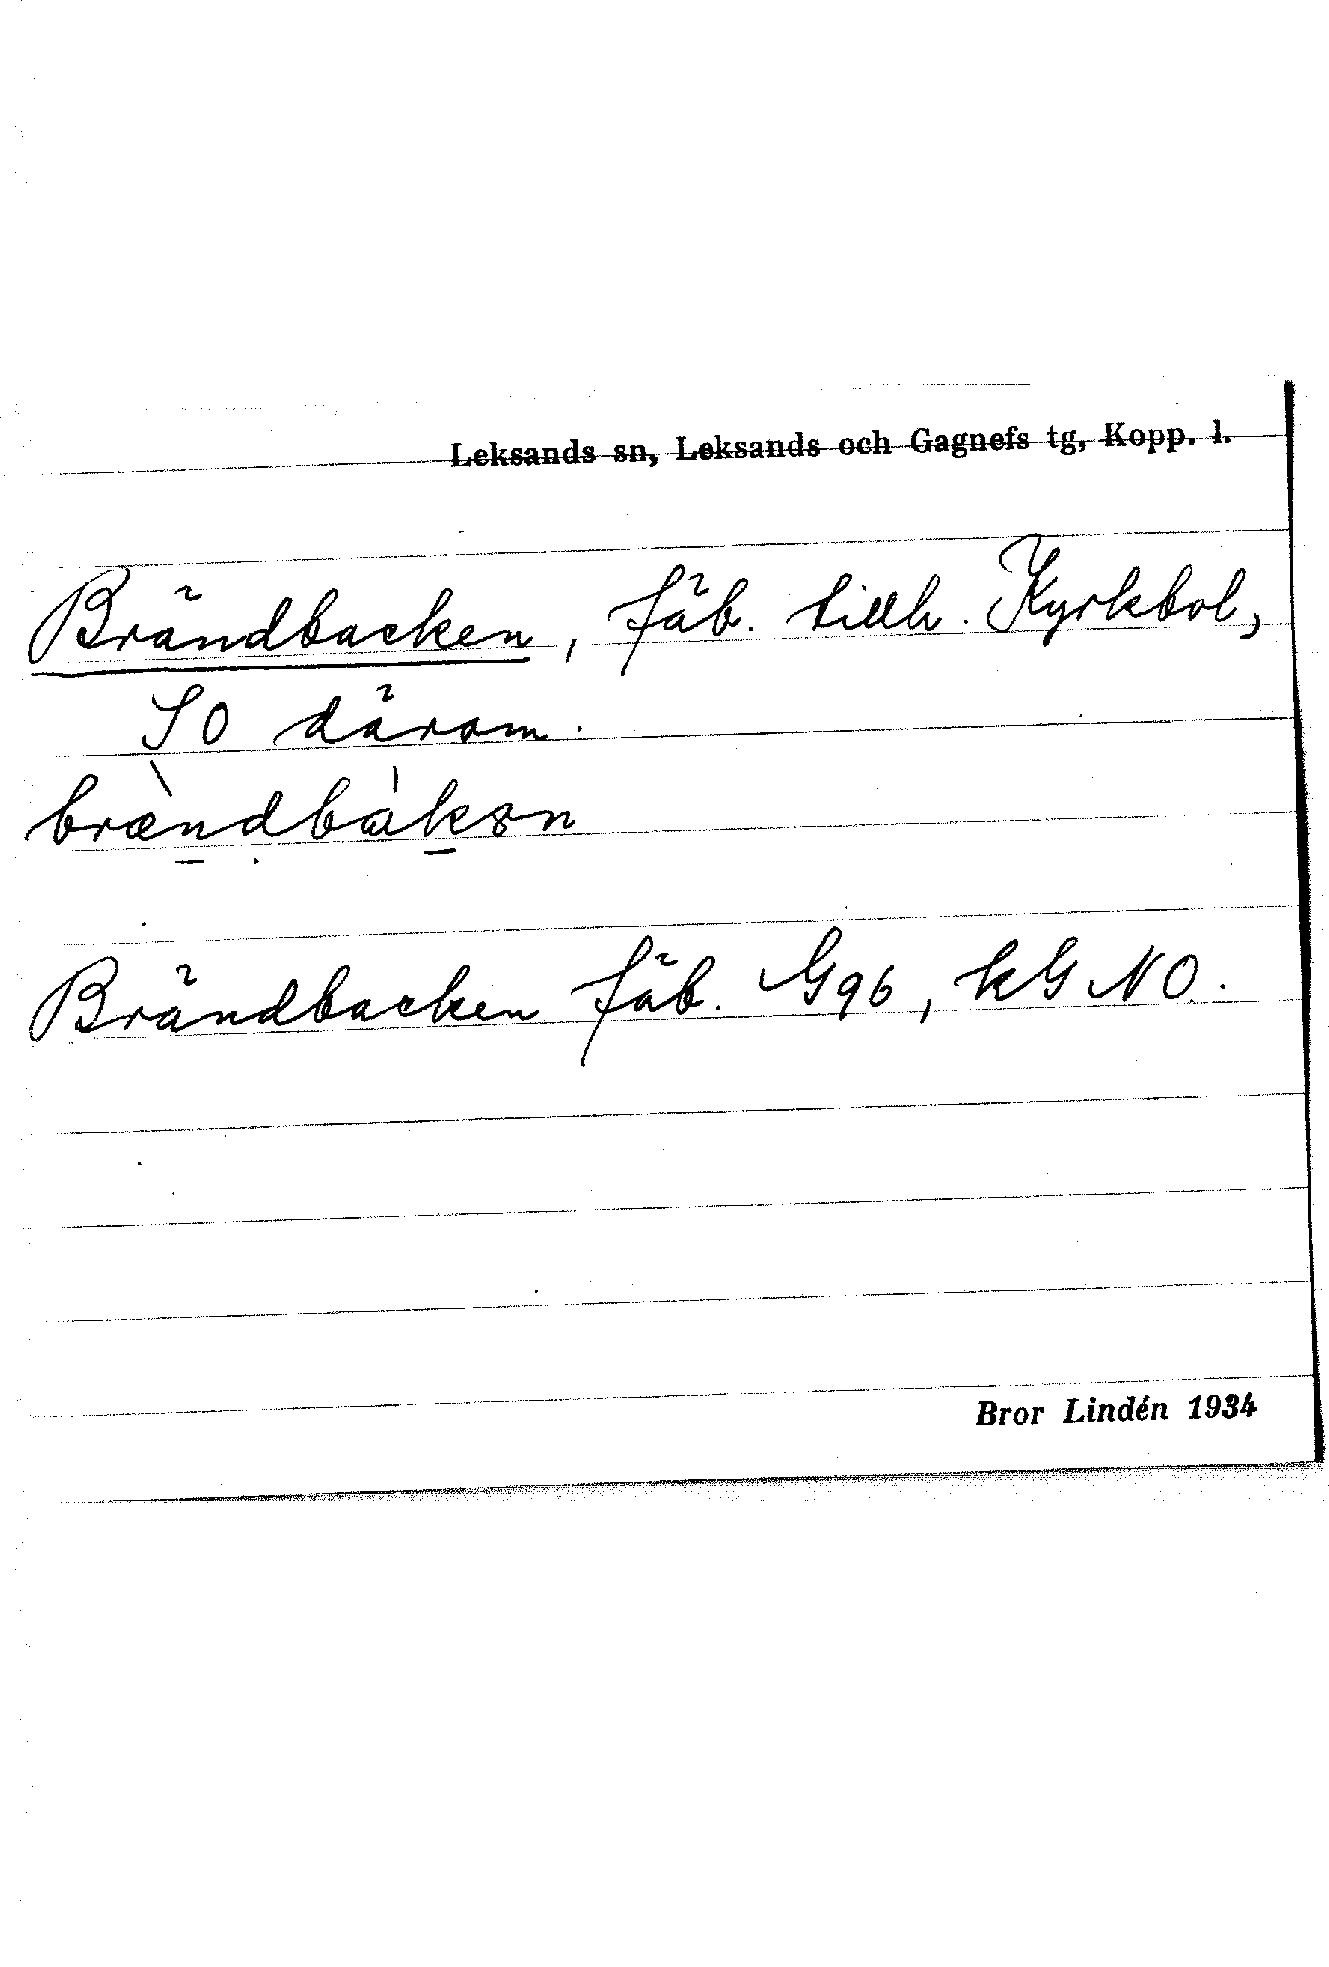 Leksands sn, Leksands och Gagnefs tg, Kopp. l.
Brändbacken, fäb. tillh. Kyrkbol,
SO därom.
brændbàkən
Brändbacken fäb. G96, kG NO.
Bror Lindén 1934